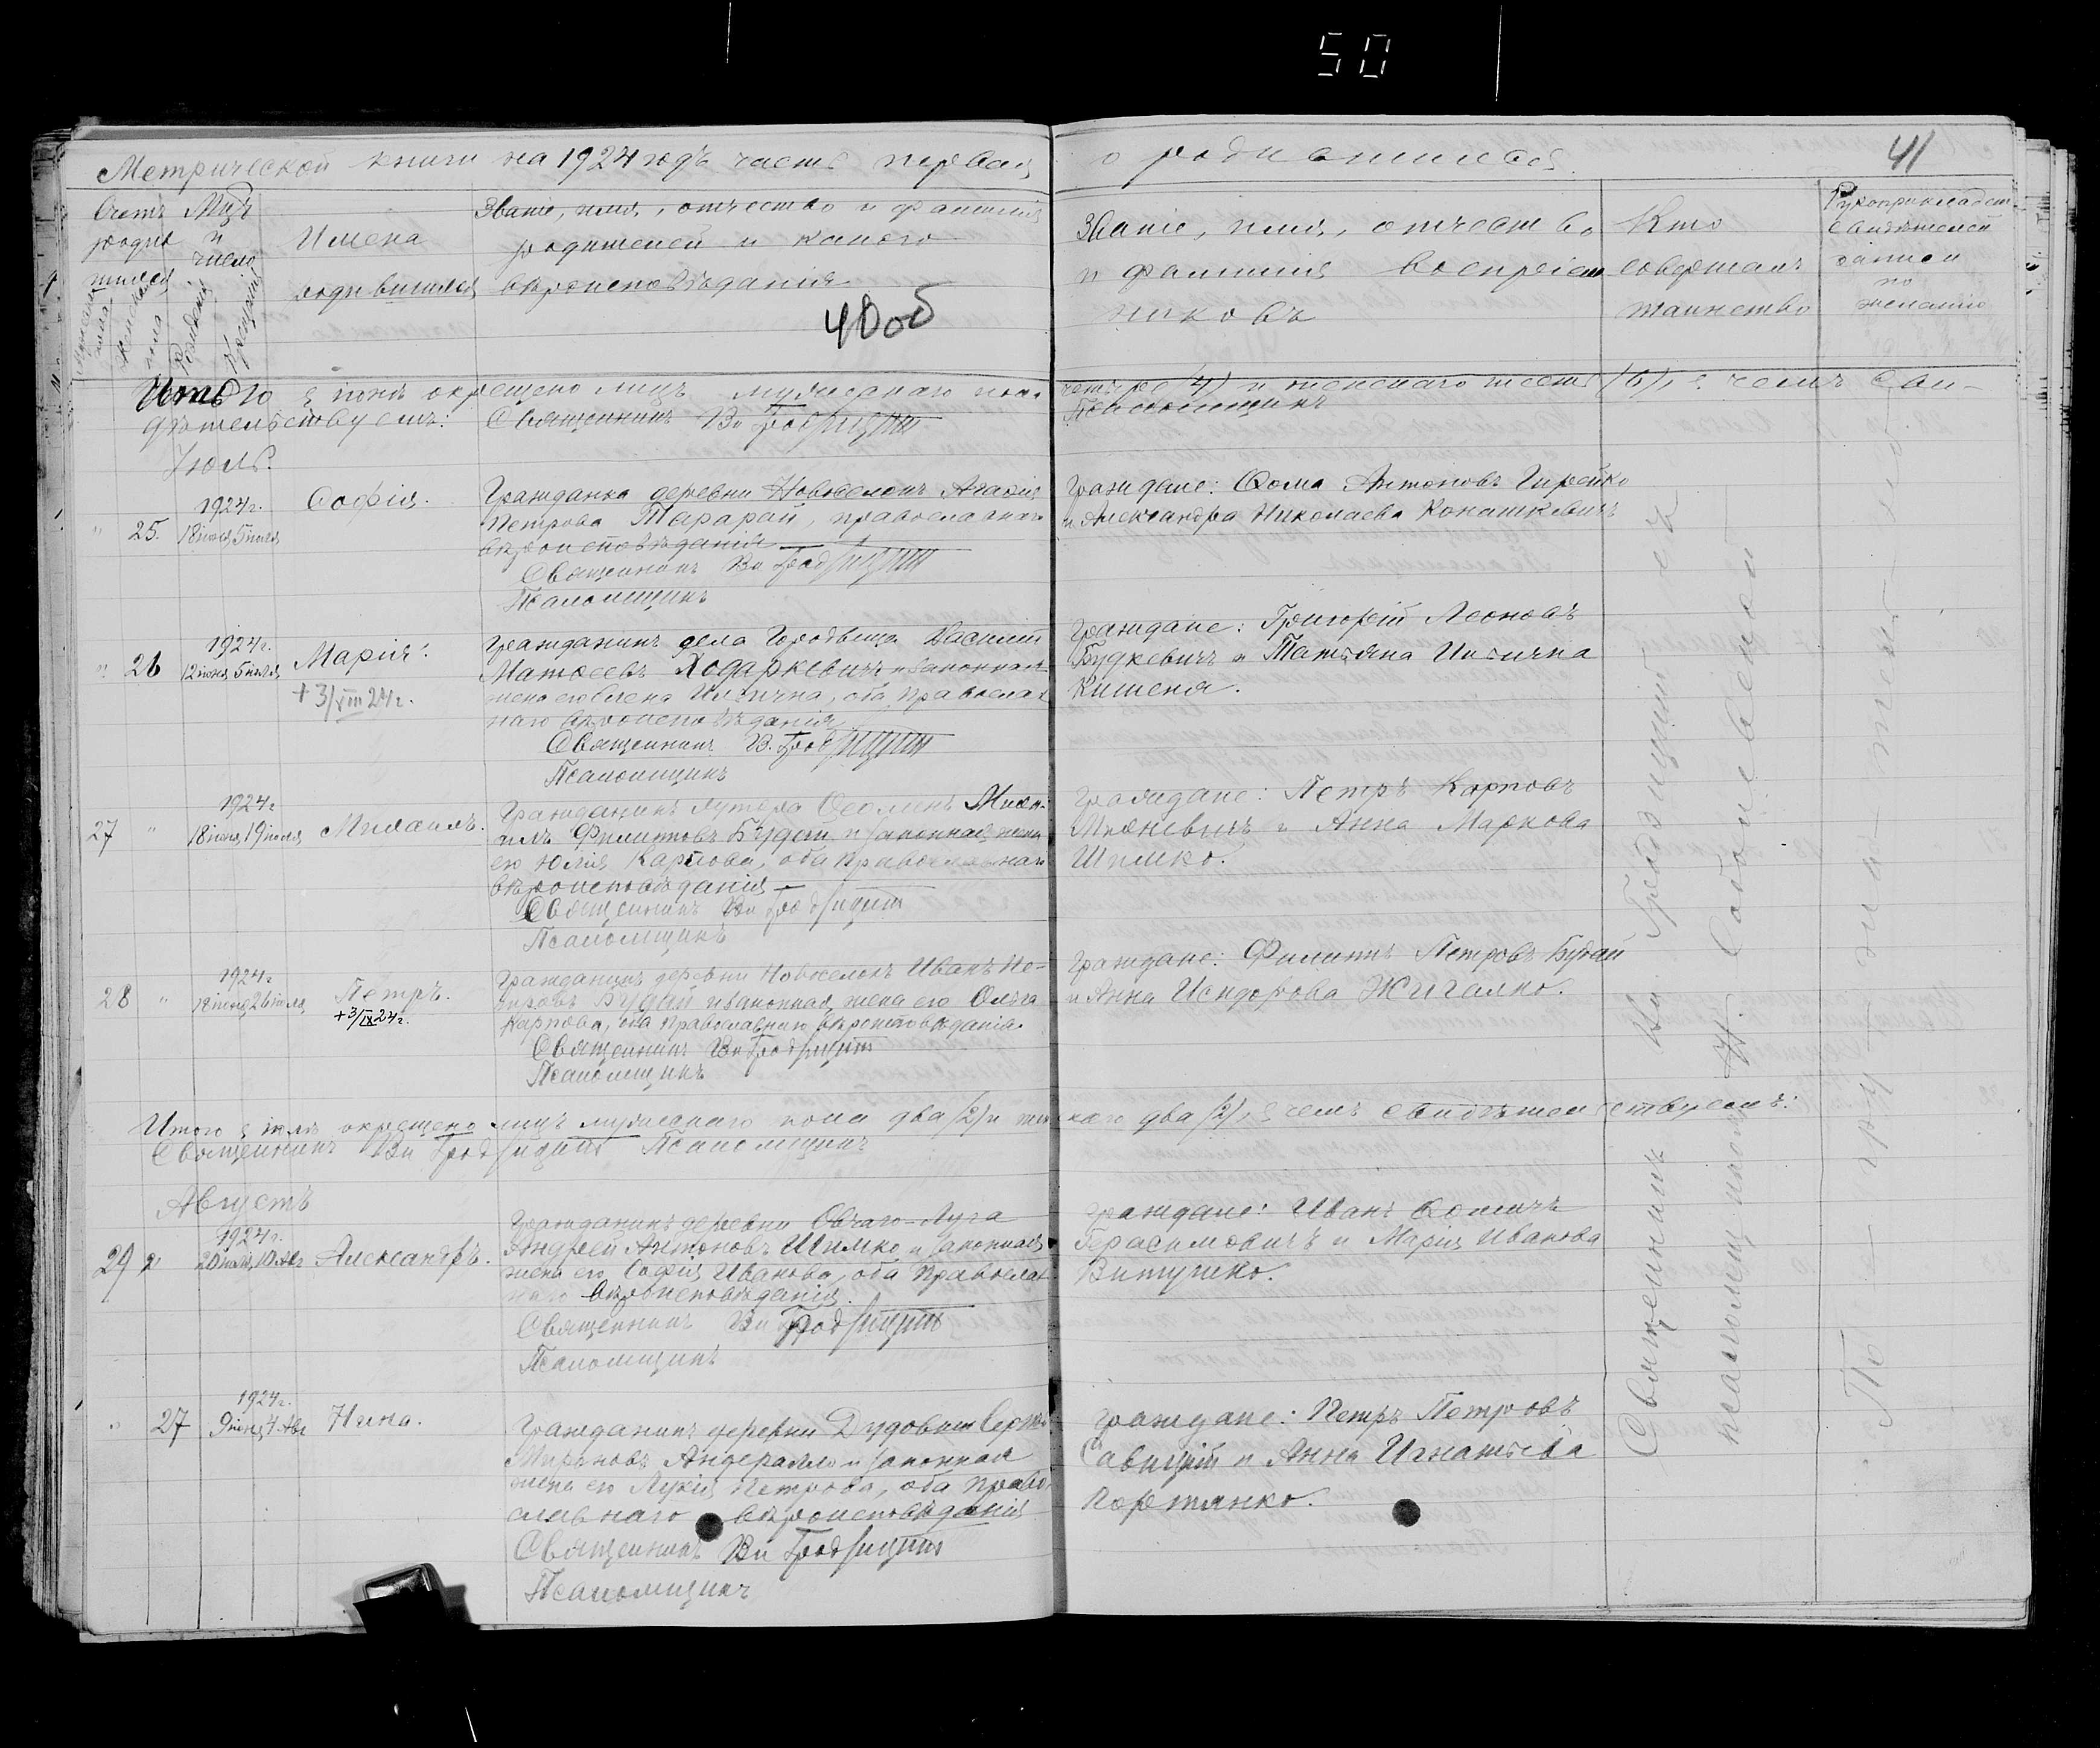 50
41
Метрической книги на 1924 годъ часть первая о родившихся.
Счетъ родив шихся
Мужскаго пола
Женскаго пола
Мцъ и число
Рожденія
Крещенія
Имена родившихся
Званіе, имя, отчество и фамилія
родителей и какого
вѣроисповѣданія
40об
Званіе, имя, отчество
и фамилія воспріем
никовъ
Кто
совершалъ
таинство
Рукоприкладст.
свидѣтелей
записи
по
желанію
Итого в іюнѣ окрещено лицъ мужескаго пола четыре (4) и женскаго шесть (6), в чемъ сви-
дѣтельствуемъ: Священникъ Вл Гродзицкій Псаломщикъ
Іюль.
" 25. 1924г. 18 іюня 5 іюля Софія.
Гражданка деревни Новоселокъ Агафія
Петрова Тарарай, православнаго
вѣроисповѣданія
Священникъ Вл Гродзицкій
Псаломщикъ
Граждане: Фома Антоновъ Гирейко
и Александра Николаева Конашкевичъ
" 26 1924г. 12 іюня 5 іюля Марія.
+3/VIII 24г.
Гражданинъ села Городвища Василій
Матѳеевъ Ходаркевичъ и законная
жена его Елена Ильична, оба православ
наго вѣроисповѣданія
Священникъ В. Гродзицкій
Псаломщикъ
Граждане: Григорій Леоновъ
Будкевичъ и Татьяна Ильична
Кишеня.
27 " 1924г 18 іюня 19 іюля Михаилъ.
Гражданинъ хутора Миха-
илъ Филиповъ Будай и законная жена
его Юлія Карпова, оба православнаго
вѣроисповѣданія
Священникъ Вл Гродзицкій
Псаломщикъ
Граждане: Петръ Карповъ
Михневичъ и Анна Маркова
Шимко.
28 " 1924г 18 іюня 26 іюля Петръ.
+3/IX 24г.
Гражданинъ деревни Новоселокъ Иванъ Пе-
тровъ Будай и законная жена его Ольга
Карпова, оба православнаго вѣроисповѣданія
Священникъ Вл Гродзицкій
Псаломщикъ
Граждане: Филиппъ Петровъ Будай
и Анна Исидорова Жигалко.
Итого в іюлѣ окрещено лицъ мужескаго пола два (2) и жен скаго два (2), в чемъ свидѣтельствуемъ:
Священникъ Вл Гродзицкій Псаломщикъ
Августъ
29 " 1924г. 20 10 Авг Александръ.
Гражданинъ деревни Луга
Андрей Антоновъ Шимко и законная
жена его Софія Иванова, оба православ
наго вѣроисповѣданія.
Священникъ Вл Гродзицкій
Псаломщикъ
Граждане: Иванъ
Герасимовичъ и Марія Иванова
Витушко.
" 27 1924г. 9 4 Авг Нина.
Гражданинъ деревни
Мироновъ и законная
жена его Лукія Петрова, оба право
славнаго вѣроисповѣданія
Священникъ Вл Гродзицкій
Псаломщикъ
Граждане: Петръ Петровъ
Савицкій и Анна Игнатьева
Священникъ Вл. Гродзицкій съ
псаломщикомъ Н.
По